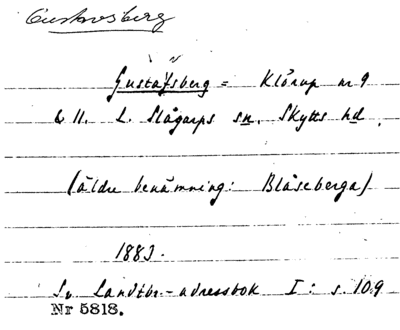 Gustavsberg
Gustafsberg = Klörup nr 9
& 11. L. Slågarps sn. Skytts hd.
(äldre benämning: Blåseberga)
1883.
Sv Landtbr.-adressbok I: s. 109
Nr 5818.